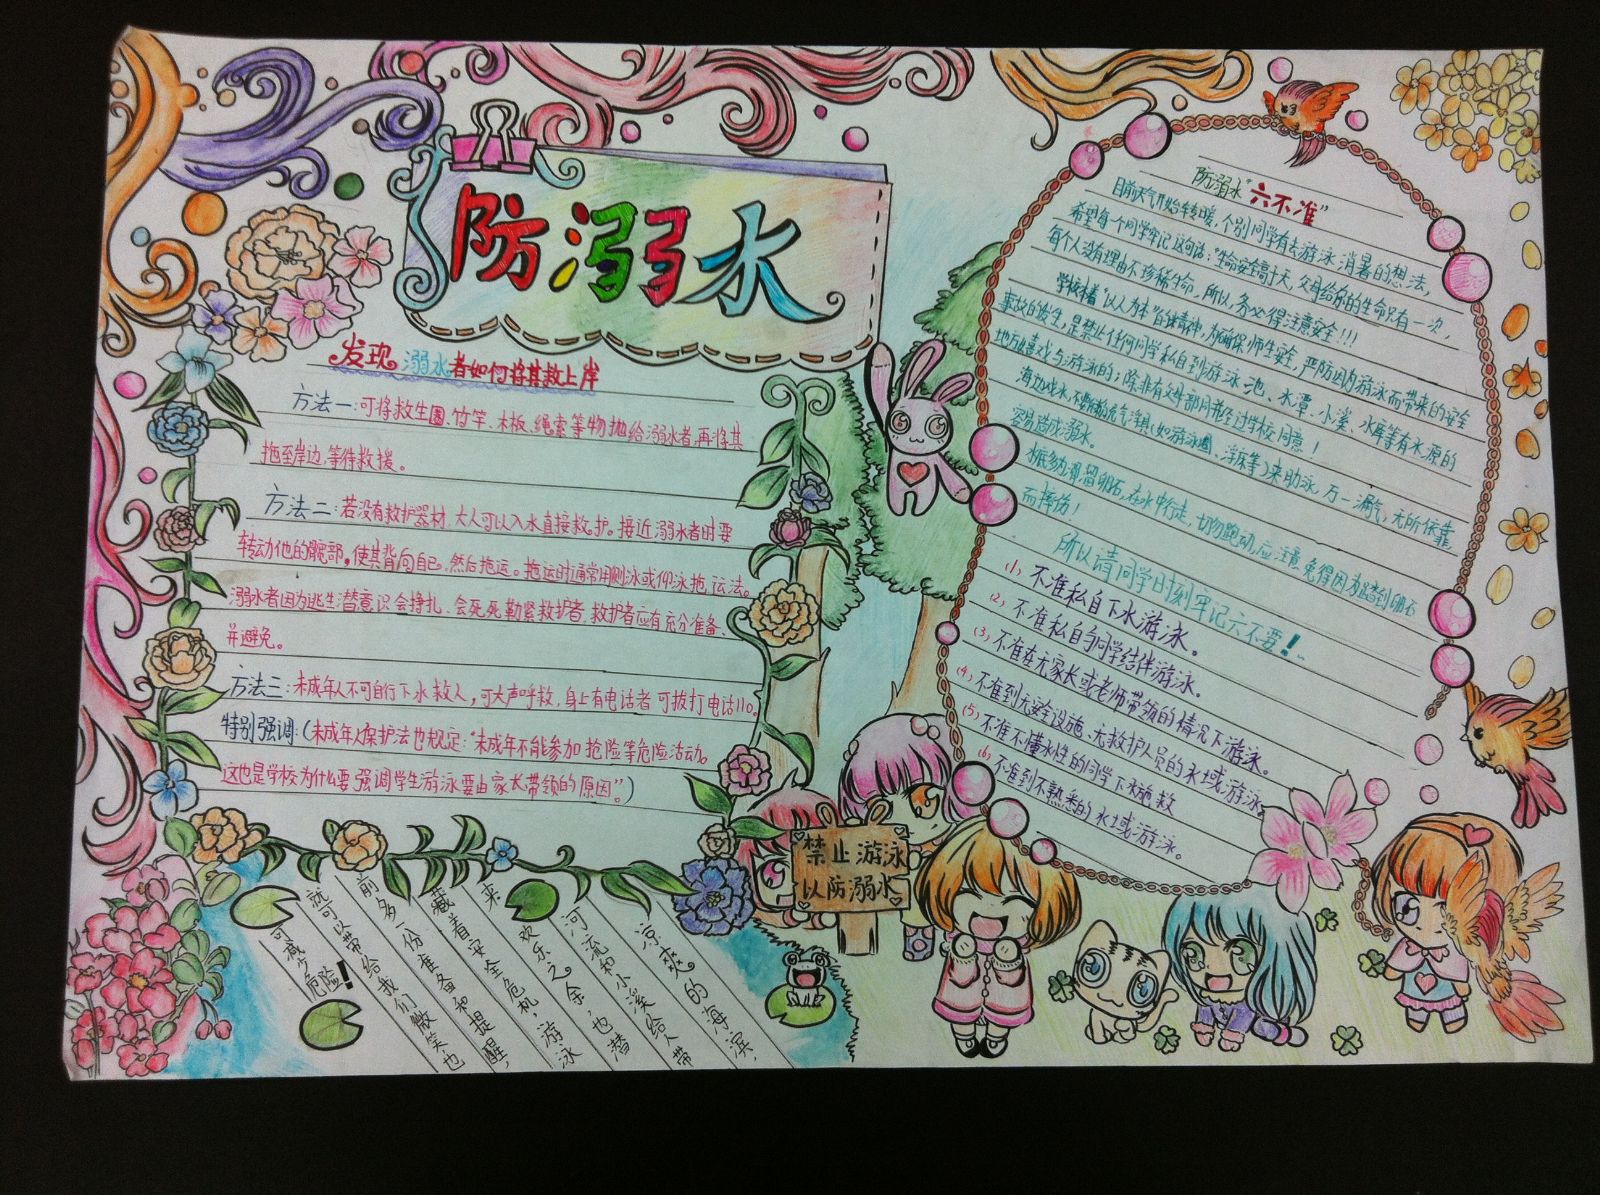 防溺水
发现溺水者如何将其救上岸
方法一：可将救生圈、竹竿、木板、绳索等物抛给溺水者，再将其
拖至岸边，等待救援。
方法二：若没有救护器材，大人可以入水直接救护。接近溺水者时要
转动他的髋部，使其背向自己，然后拖运。拖运时通常用侧泳或仰泳拖运法。
溺水者因为逃生潜意识会挣扎、会死死勒紧救护者，救护者应有充分准备、
并避免。
方法三：未成年人不可自行下水救人，可大声呼救，身上有电话者可拔打电话110。
特别强调：（未成年人保护法也规定：“未成年不能参加抢险等危险活动。
这也是学校为什么要强调学生游泳要由家长带领的原因”。）
凉爽的海滨，
河流和小溪给人带
来欢乐之余，也潜
藏着安全危机，游泳
前多一份准备和提醒，
就可以带给我们微笑，也
可减少危险！
禁止游泳
以防溺水
防溺水“六不准”
目前天气开始转暖，个别同学有去游泳消暑的想法，
希望每个同学牢记这句话：“生命安全高于天，父母给你的生命只有一次，
每个人没有理由不珍稀生命，所以，务必得注意安全！！！
学校本着“以人为本”的精神，为确保师生安全，严防因为游泳而带来的安全
事故的发生，是禁止任何同学私自到游泳池、水潭、小溪、水库等有水源的
地方去嬉戏与游泳的；除非有父母部同并经过学校同意！
海边戏水，不要充气浮具（如游泳圈、浮床等）来助泳，万一漏气，无所依靠，
容易造成溺水。
水底多为滑溜卵石，在水中行走，切勿跑动，应注意免得因为踏到卵石
而摔伤！
所以请同学时刻牢记六不要！
(1) 不准私自下水游泳。
(2) 不准私自与同学结伴游泳。
(3) 不准在无家长或老师带领的情况下游泳。
(4) 不准到无安全设施、无救护人员的水域游泳。
(5) 不准不懂水性的同学下水施救
(6) 不准到不熟悉的水域游泳。